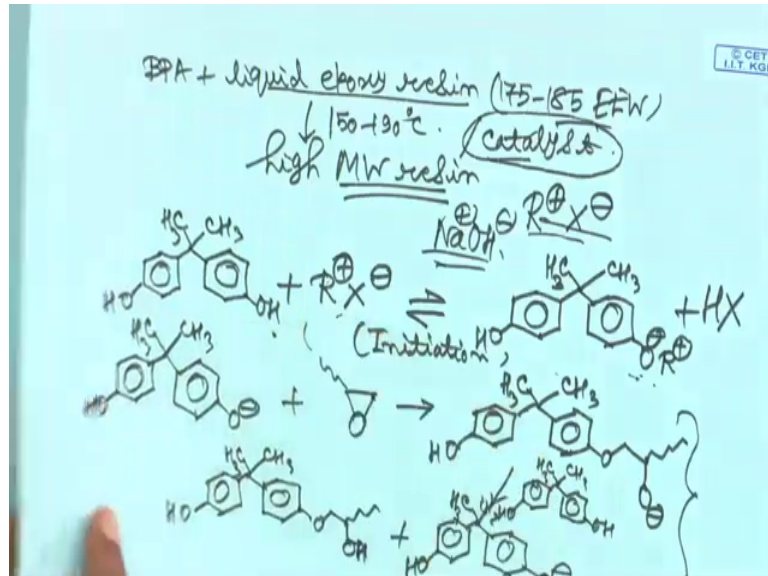 © CET
I.I.T. KGP
BPA + liquid epoxy resin (175-185 EEW)
↓ 150-190°C. (catalyst.
high MW resin
Na⊕OH⊖, R⊕X⊖
H₃C CH₃
HO OH + R⊕X⊖ ⇌ H₃C CH₃ HO O⊖ R⊕ + HX
(Initiation)
H₃C CH₃
HO O⊖ + O → H₃C CH₃ HO O O⊖
H₃C CH₃
HO O OH + H₃C HO O⊖
H₃C CH₃
HO OH